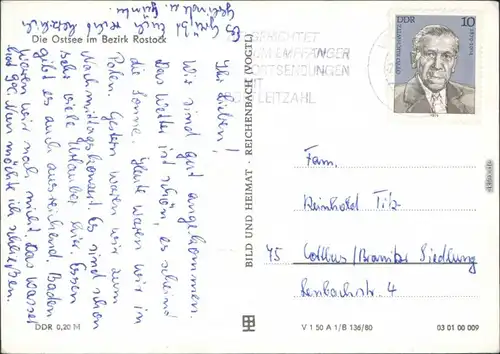 Die Ostsee im Bezirk Rostock
Es grüßt Euch recht herzlich
Ihr Lieben!
Wir sind gut angekommen.
Das Wetter ist schön, es scheint
die Sonne. Heute waren wir in
Polen. Gestern waren wir zum
Nachmittagskonzert. Es sind schon
sehr viele Urlauber hier. Essen
gibt es auch ausreichend. Baden
waren wir noch nicht. Das Wasser
hat 9c. Nun möchte ich schließen.
DDR 0,20 M
BILD UND HEIMAT · REICHENBACH (VOGTL)
GERICHTET
EMPFÄNGER
POSTSENDUNGEN
MIT
LEITZAHL
DDR
10
Fam.
Reinhold Titz
75 Cottbus/Branitzer Siedlung
Lenbachstr. 4
V 1 50 A 1/B 136/80
03 01 00 009